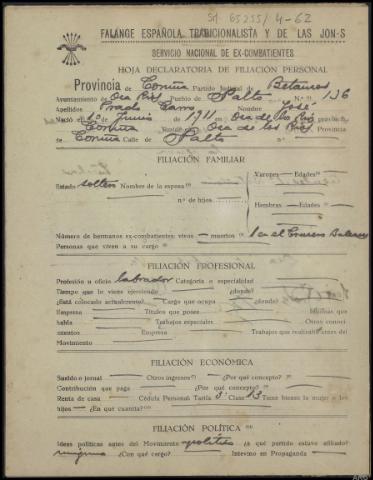 Sd. 65255/4-62
FALANGE ESPAÑOLA TRADICIONALISTA Y DE LAS JON-S
SERVICIO NACIONAL DE EX-COMBATIENTES
HOJA DECLARATORIA DE FILIACIÓN PERSONAL
Provincia de Coruña Partido Judicial de Betanzos
Ayuntamiento de Oza Rios Pueblo de Salto N.º 136
Apellidos Prado Nombre José
Nació el 1º Junio 1911 en Oza de los Rios provincia de
Coruña Reside Oza de los Rios Provincia
Coruña Calle de Salto n.º
FILIACIÓN FAMILIAR
Varones - Edades
Estado soltero Nombre de la esposa
n.º de hijos
Hembras - Edades
Número de hermanos ex-combatientes: vivos muertos 1 en el Crucero Baleares
Personas que viven a su cargo
FILIACIÓN PROFESIONAL
Profesión u oficio labrador Categoría o especialidad
Tiempo que lo viene ejerciendo ¿dónde?
¿Está colocado actualmente? Cargo que ocupa ¿dónde?
Empresa Títulos que posee Idiomas que
habla Trabajos especiales Otros conoci-
mientos Empresa Trabajos que realizó antes del
Movimiento
FILIACIÓN ECONÓMICA
Sueldo o jornal Otros ingresos ¿Por qué concepto?
Contribución que paga ¿Por qué concepto?
Renta de casa Cédula Personal Tarifa 3ª Clase 13 Tiene bienes la mujer o los
hijos ¿En qué cuantía?
FILIACIÓN POLÍTICA
Ideas políticas antes del Movimiento ¿A qué partido estuvo afiliado?
ninguno ¿Con qué cargo? Intervino en Propaganda